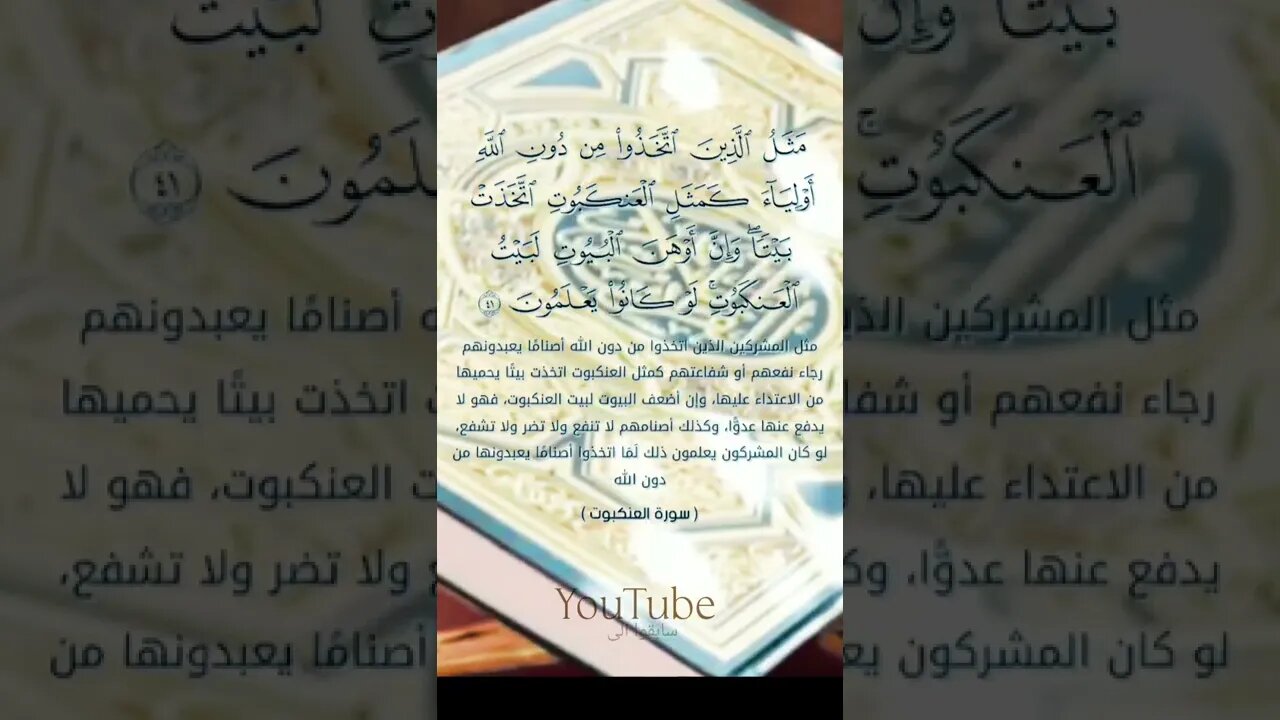 مَثَلُ ٱلَّذِينَ ٱتَّخَذُواْ مِن دُونِ ٱللَّهِ
أَوْلِيَآءَ كَمَثَلِ ٱلْعَنكَبُوتِ ٱتَّخَذَتْ
بَيْتٗاۖ وَإِنَّ أَوْهَنَ ٱلْبُيُوتِ لَبَيْتُ
ٱلْعَنكَبُوتِۚ لَوْ كَانُواْ يَعْلَمُونَ ٤١
مثل المشركين الذين اتخذوا من دون الله أصنامًا يعبدونهم
رجاء نفعهم أو شفاعتهم كمثل العنكبوت اتخذت بيتًا يحميها
من الاعتداء عليها، وإن أضعف البيوت لبيت العنكبوت، فهو لا
يدفع عنها عدوًّا، وكذلك أصنامهم لا تنفع ولا تضر ولا تشفع،
لو كان المشركون يعلمون ذلك لَمَا اتخذوا أصنامًا يعبدونها من
دون الله
( سورة العنكبوت )
YouTube
سابقوا الى